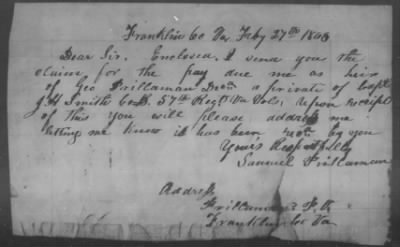 Franklin Co Va Feby 27th 1863
Dear Sir. Enclosed I send you the
claim for the pay due me as heir
of Geo Prillaman Decd a private of Capt
J H Smiths Co B. 57th Regt Va Vols, Upon receipt
of this you will please address me
letting me know it has been recd by you
Yours Respectfully
Samuel Prillaman
Address
Prillamans P. O
Franklin Co Va